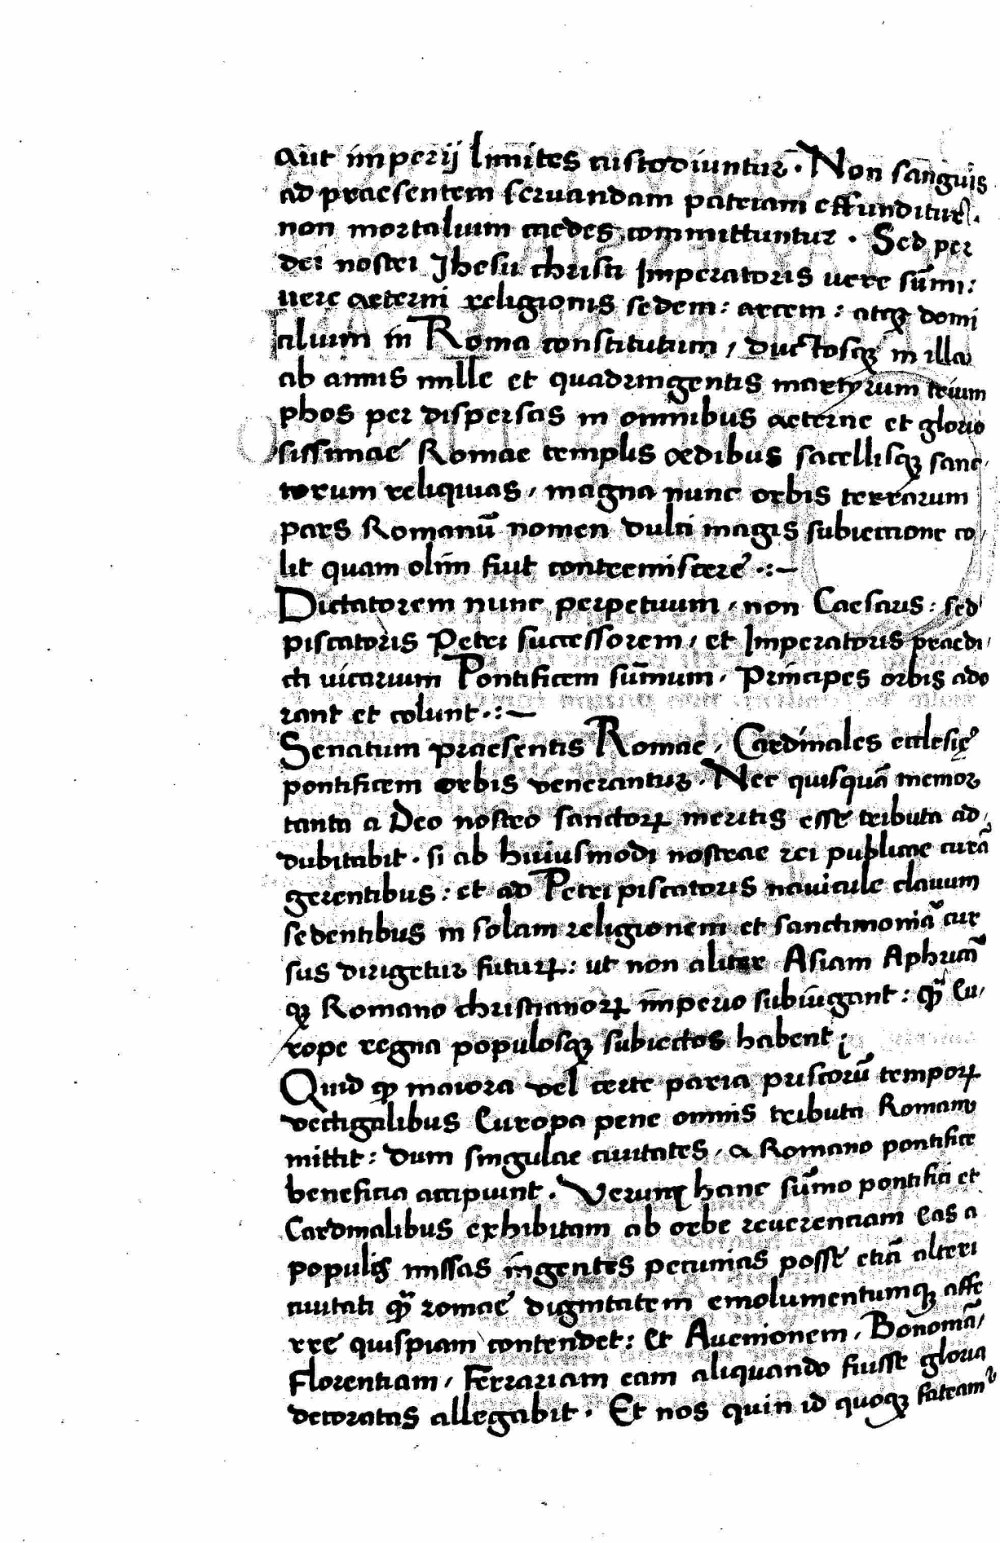 aut imperij limites custodiuntur. Non sanguis
ad praesentem servandam patriam effunditur.
non mortalium caedes committuntur. Sed per
dei nostri Jhesu christi Imperatoris vere sum̄i:
vere aeterni religionis sedem: arcem: atqꝫ domi
cilium in Roma constitutum, ductosqꝫ in illa
ab annis mille et quadringentis martyrum trium
phos per dispersas in omnibus aeterne et glorio
sissimae Romae templis aedibus sacellisqꝫ sanc,
torum reliquias, magna nunc orbis terrarum
pars Romanū nomen dulci magis subiectione co,
lit quam olim fuit contremiscere .:—
Dictatorem nunc perpetuum, non Caesaris: sed
piscatoris Petri successorem, et Imperatoris praedi,
cti vicarium Pontificem sum̄um, Principes orbis ado
rant et colunt.:—
Senatum praesentis Romae, Cardinales ecclesię
pontificem orbis venerantur. Nec quisquā memor
tanta a Deo nostro sanctoꝝ meritis esse tributa ad,
dubitabit. si ab huiusmodi nostrae rei publicae curā
gerentibus: et ad Petri piscatoris navicule clavum
sedentibus in solam religionem et sanctimoniā cur
sus dirigetur futuꝝ: ut non aliter Asiam Aphricā
qꝫ Romano christianoꝝ imperio subiugant: qꝫ̄ Eu,
rope regna populosqꝫ subiectos habent;
Quid qꝫ maiora vel certe paria priscorū tempoꝝ
vectigalibus Europa pene omnis tributa Romam
mittit: dum singulae civitates, a Romano pontifice
beneficia accipiunt. Verum hanc sum̄o pontifici et
Cardinalibus exhibitam ab orbe reverentiam eas a
populis missas ingentes pecunias posse etiā alteri
civitati qꝫ̄ romae dignitatem emolumentumqꝫ affe
rre quispiam contendet: Et Avenionem, Bononiā,
Florentiam, Ferrariam eam aliquando fuisse gloria
decoratas allegabit. Et nos quin id quoqꝫ fateamᷣ